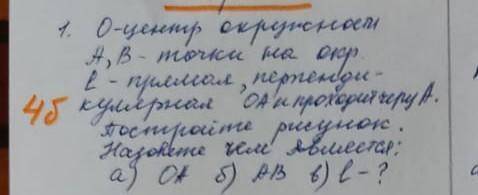 1. О-центр окружности
А, В - точки на окр.
l - прямая, перпенди-
4б кулярная ОА и проходит через А.
Постройте рисунок.
Назовите чем является:
а) ОА б) АВ в) l - ?